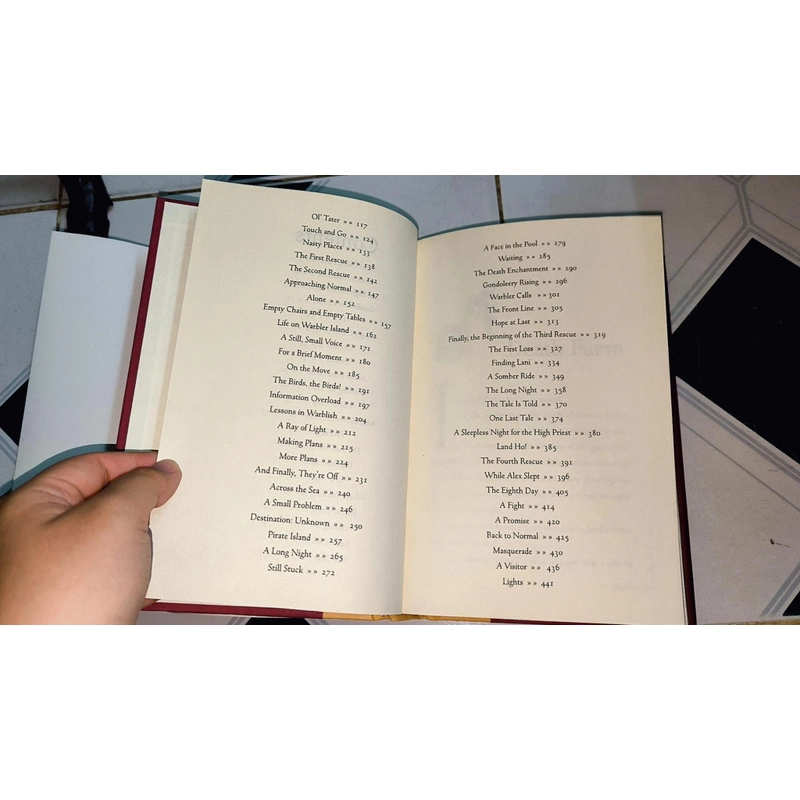 Ol' Tater »» 117
Touch and Go »» 124
Nasty Places »» 133
The First Rescue »» 138
The Second Rescue »» 142
Approaching Normal »» 147
Alone »» 152
Empty Chairs and Empty Tables »» 157
Life on Warbler Island »» 162
A Still, Small Voice »» 171
For a Brief Moment »» 180
On the Move »» 185
The Birds, the Birds! »» 191
Information Overload »» 197
Lessons in Warblish »» 204
A Ray of Light »» 212
Making Plans »» 215
More Plans »» 224
And Finally, They're Off »» 231
Across the Sea »» 240
A Small Problem »» 246
Destination: Unknown »» 250
Pirate Island »» 257
A Long Night »» 265
Still Stuck »» 272
A Face in the Pool »» 279
Waiting »» 285
The Death Enchantment »» 290
Gondoleery Rising »» 296
Warbler Calls »» 301
The Front Line »» 305
Hope at Last »» 313
Finally, the Beginning of the Third Rescue »» 319
The First Loss »» 327
Finding Lani »» 334
A Somber Ride »» 349
The Long Night »» 358
The Tale Is Told »» 370
One Last Tale »» 374
A Sleepless Night for the High Priest »» 380
Land Ho! »» 385
The Fourth Rescue »» 391
While Alex Slept »» 396
The Eighth Day »» 405
A Fight »» 414
A Promise »» 420
Back to Normal »» 425
Masquerade »» 430
A Visitor »» 436
Lights »» 441